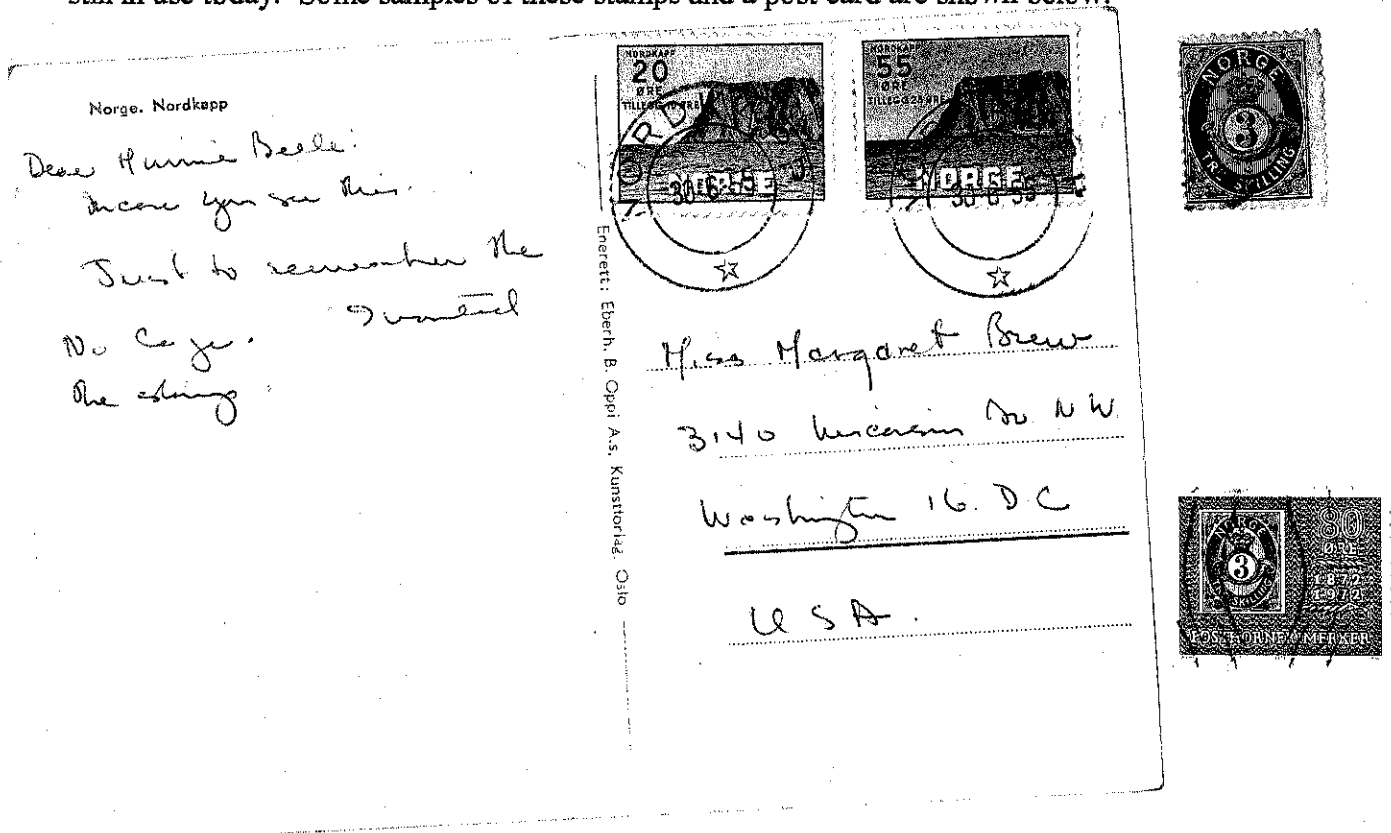 still in use today. Some samples of these stamps and a post card are shown below.
Norge. Nordkapp
Dear Minnie Belle:
you see this.
Just to remember the
No
the
Enerett: Eberh. B. Oppi A.s. Kunstforlag. Oslo
NORDKAPP
20
ØRE
TILLEGG 10 ØRE
NORGE
NORDKAPP
55
ØRE
TILLEGG 25 ØRE
NORGE
Miss Margaret Brew
3140 Wisconsin Av NW
Washington 16. D C
U S A.
NORGE
3
TRE SKILLING
NORGE
3
SKILLING
80
ØRE
1872
1972
POSTHORNFRIMERKER